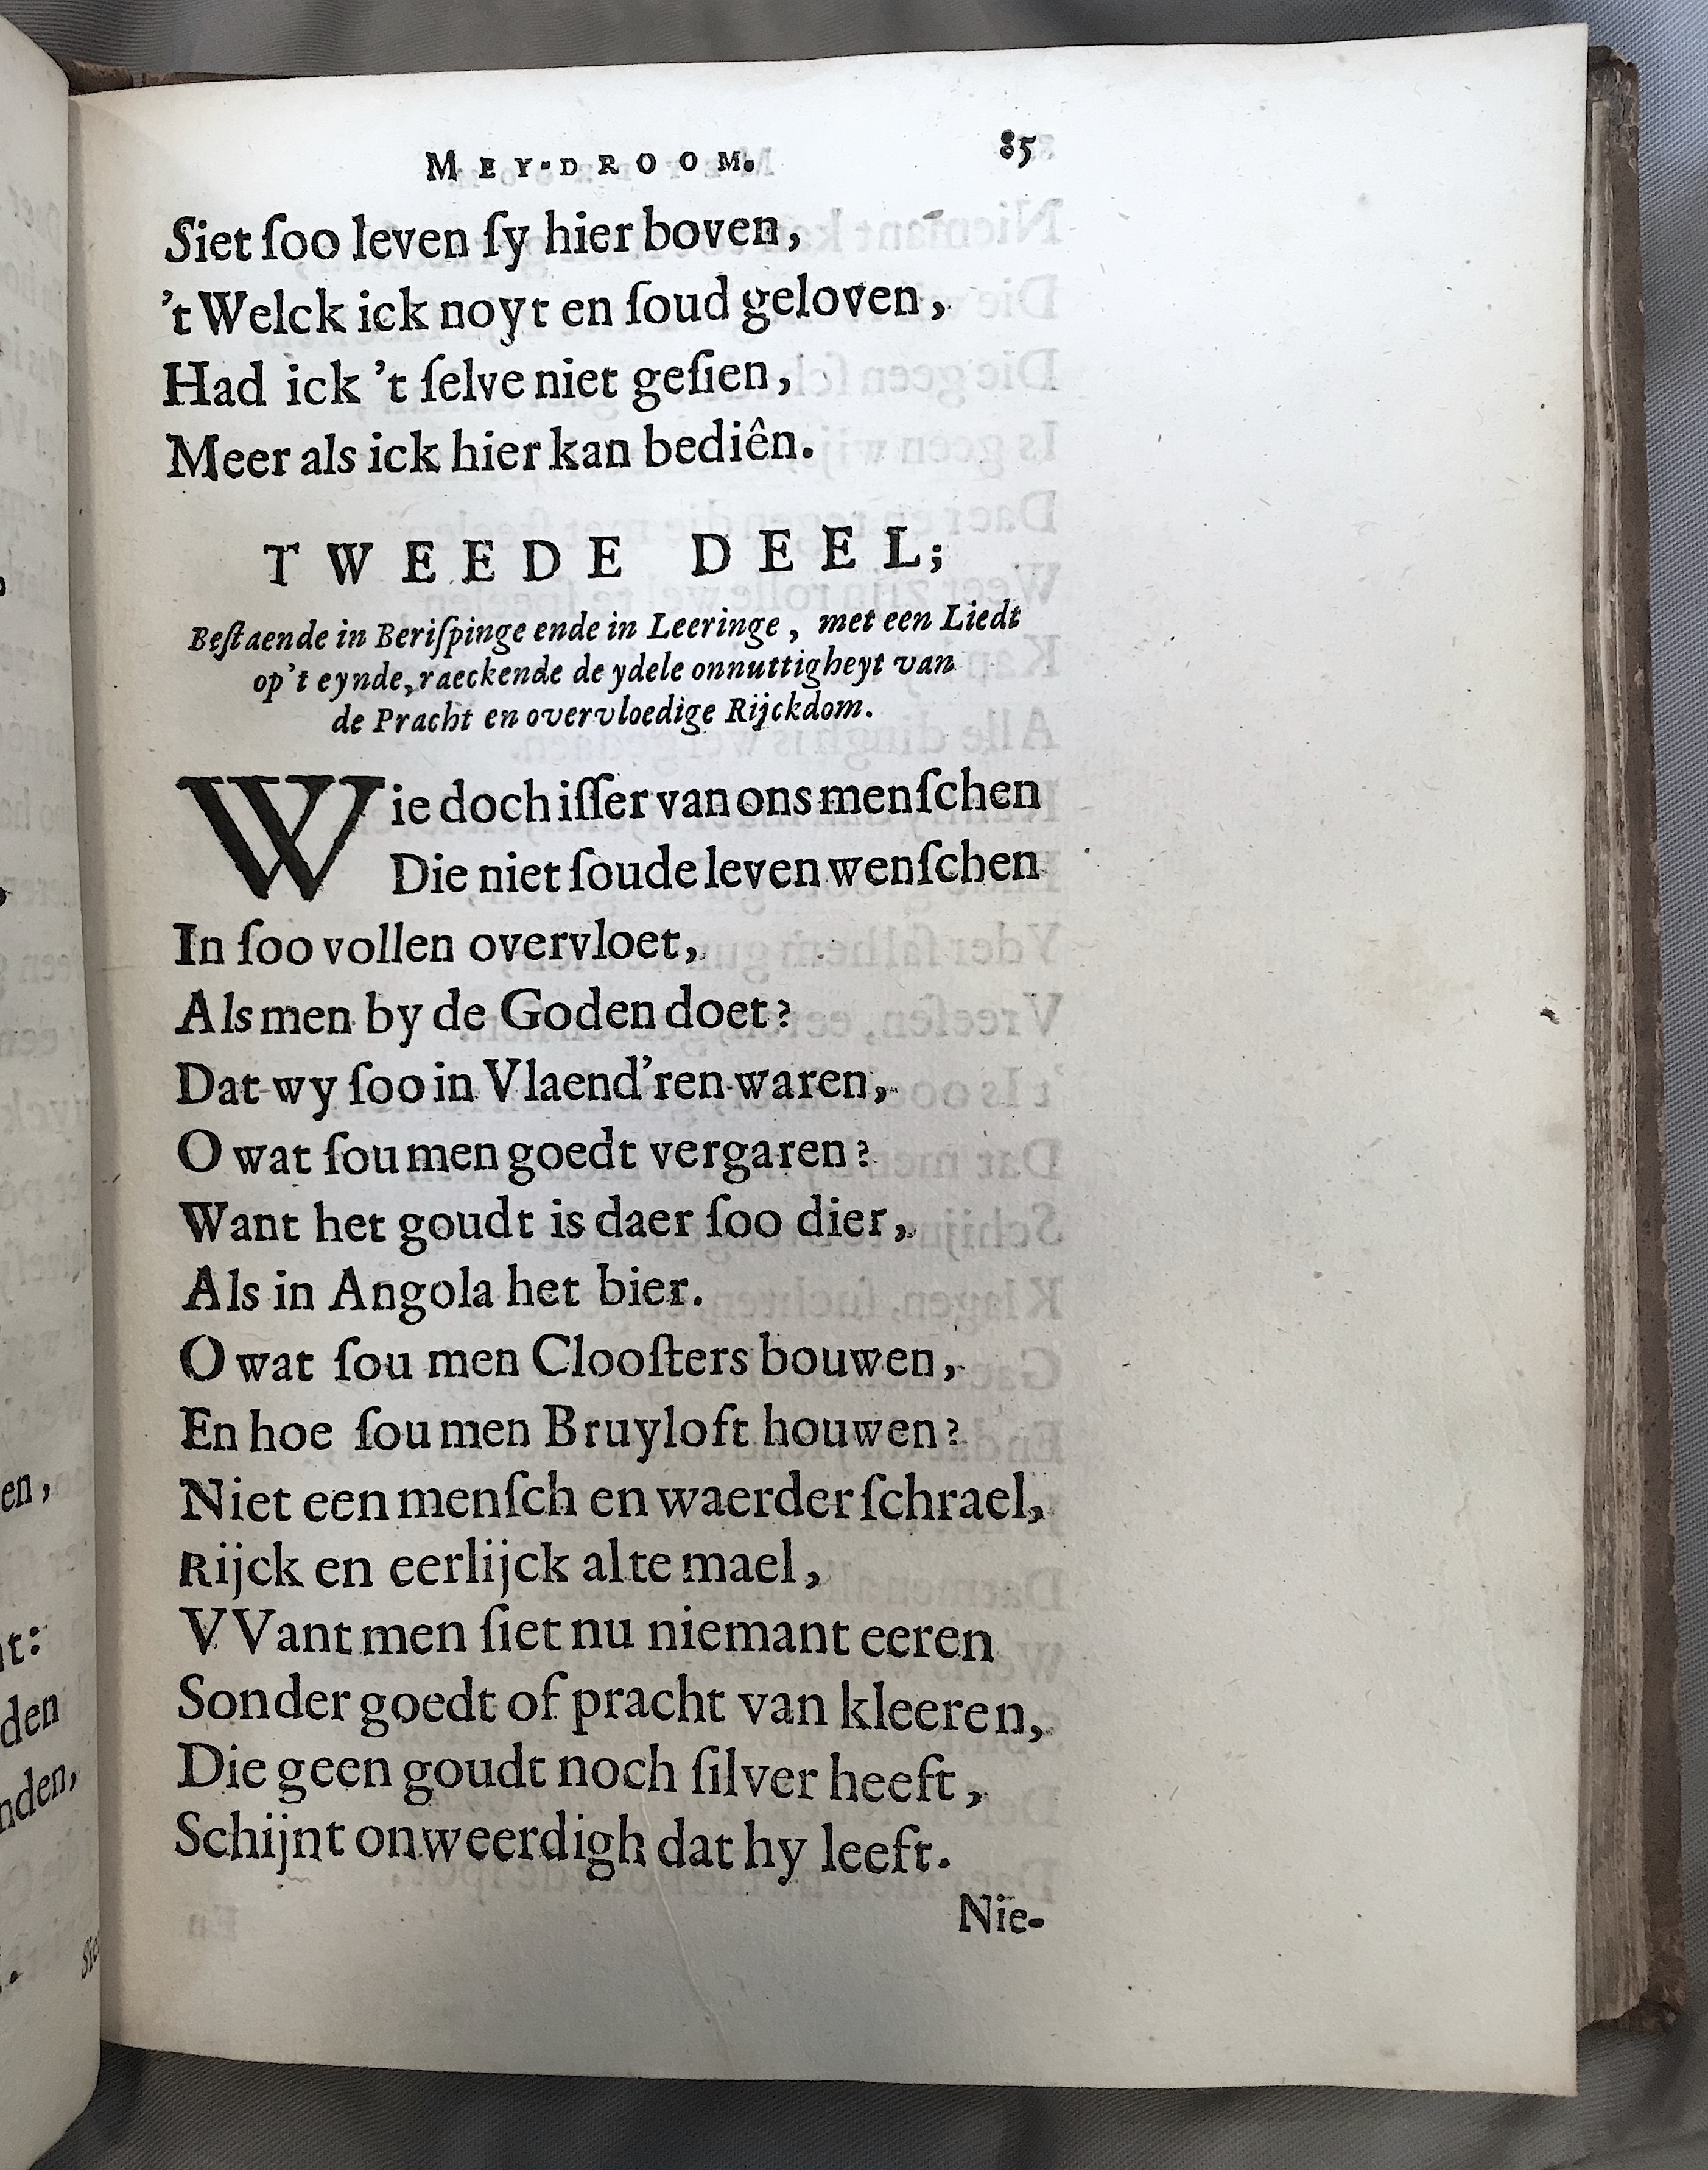 MEY-DROOM. 85
Siet ſoo leven ſy hier boven,
't Welck ick noyt en ſoud geloven,
Had ick 't ſelve niet geſien,
Meer als ick hier kan bediên.
TWEEDE DEEL;
Beſtaende in Beriſpinge ende in Leeringe, met een Liedt
op 't eynde, raeckende de ydele onnuttigheyt van
de Pracht en overvloedige Rijckdom.
Wie doch iſſer van ons menſchen
Die niet ſoude leven wenſchen
In ſoo vollen overvloet,
Als men by de Goden doet?
Dat wy ſoo in Vlaend'ren waren,
O wat ſou men goedt vergaren?
Want het goudt is daer ſoo dier,
Als in Angola het bier.
O wat ſou men Clooſters bouwen,
En hoe ſou men Bruyloft houwen?
Niet een menſch en waerder ſchrael,
Rijck en eerlijck al te mael,
VVant men ſiet nu niemant eeren
Sonder goedt of pracht van kleeren,
Die geen goudt noch ſilver heeft,
Schijnt onweerdigh dat hy leeft.
Nie-
en,
t:
den
nden,